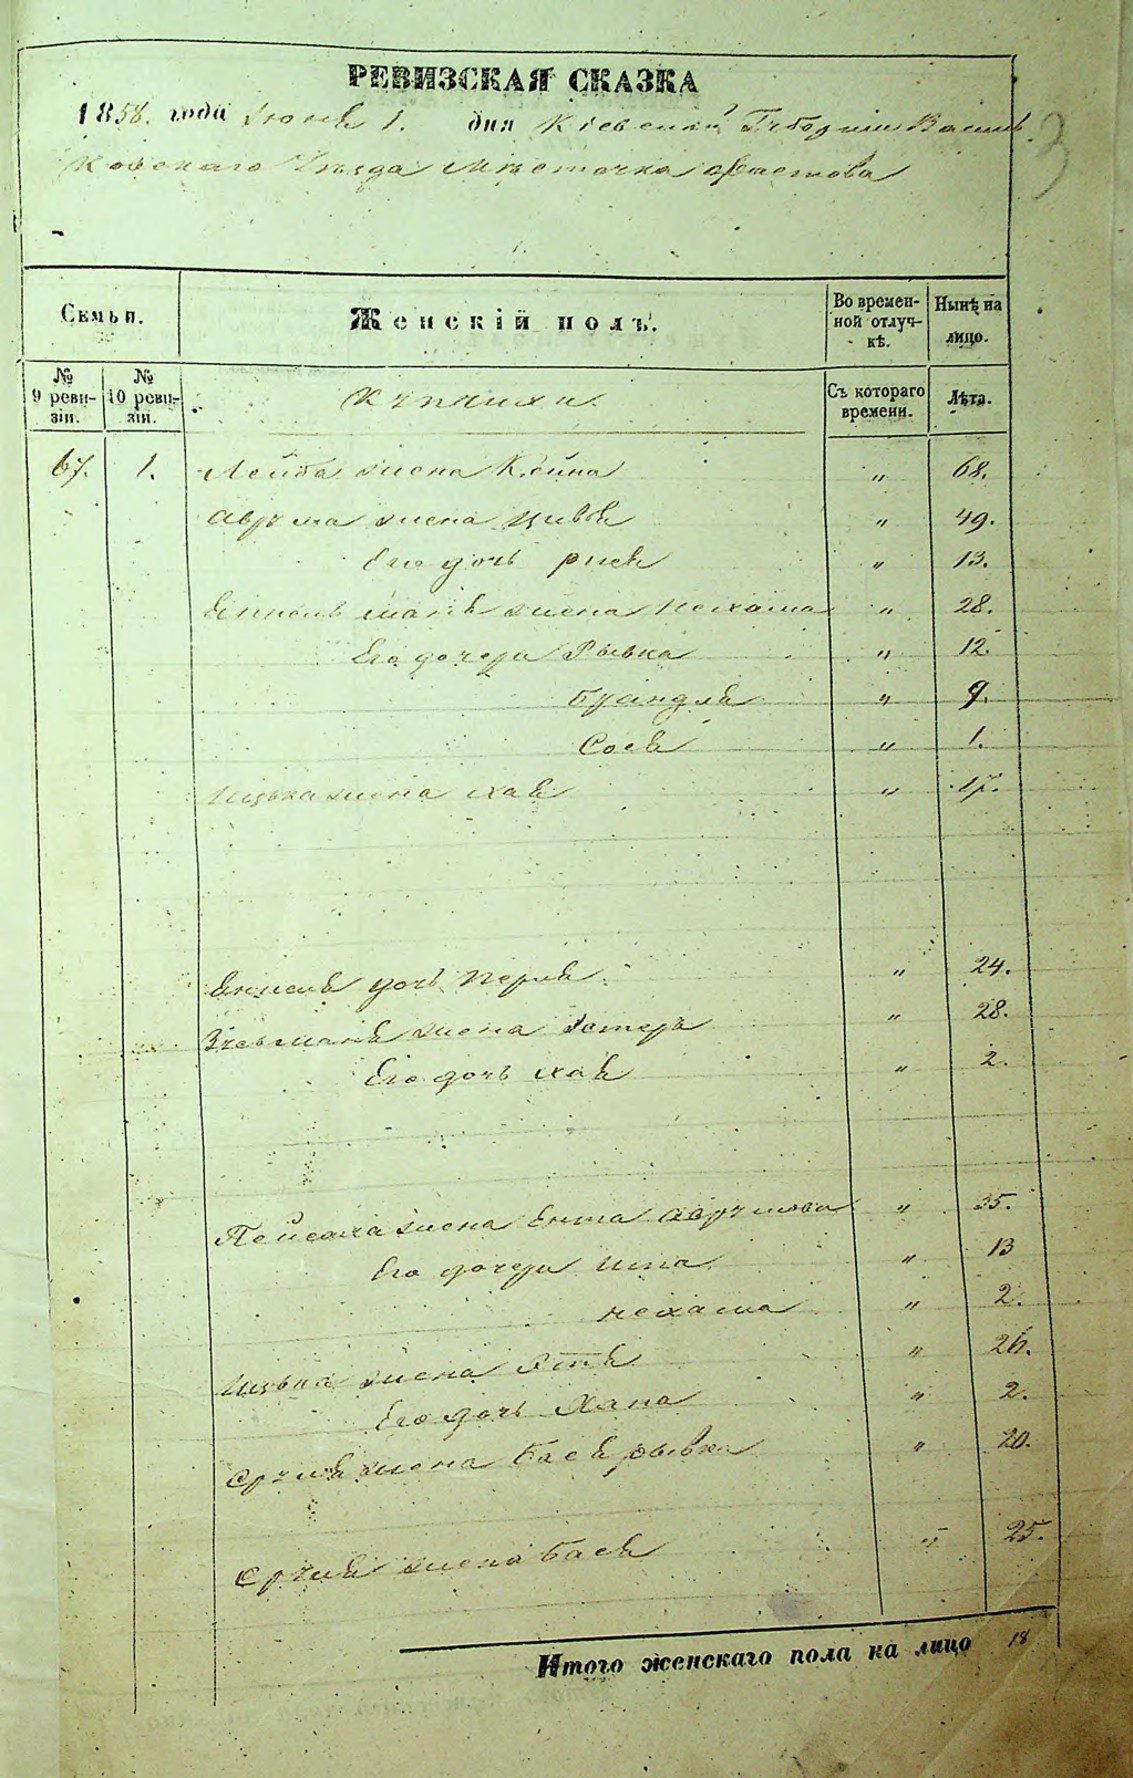 РЕВИЗСКАЯ СКАЗКА
1858. года Іюня 1. дня Кіевской Губерніи Василь
ковскаго Уѣзда Мѣстечка Фастова
3
Семьи.
Женскій полъ.
Во времен-
ной отлуч-
кѣ.
Нынѣ на
лицо.
№
9 реви-
зіи.
№
10 реви-
зіи.
Купчихи.
Съ котораго
времени.
Лѣта.
67. 1. Лейба жена Кейна " 68.
Аврума жена Цивья " 49.
Его дочь " 13.
жена Нехама " 28.
Его дочери Рывка " 12.
Брандля " 9.
Сося " 1.
Ицька жена Хая " 17.
дочь Перля " 24.
Зусьманя жена Эстеръ " 28.
Его дочь Хая " 2.
Пейсаха жена Ента Аврумова " 35.
Его дочери " 13
Нехама " 2.
Ицька жена " 26.
Его дочь Хана " 2.
Сруля жена Бася Рывка " 20.
Сруля жена Бася " 25.
Итого женскаго пола на лицо 18